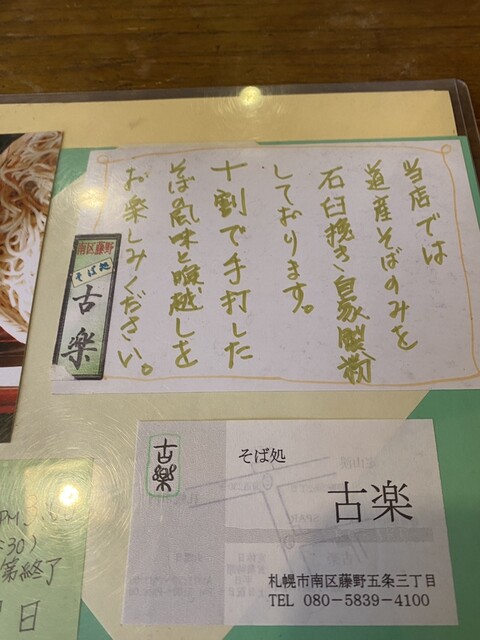 当店では
道産そばのみを
石臼挽き自家製粉
しております。
十割で手打した
そばの風味と喉越しを
お楽しみください。
南区藤野
そば処
古楽
古楽
そば処
古楽
札幌市南区藤野五条三丁目
TEL 080-5839-4100
:30)
第終了
日